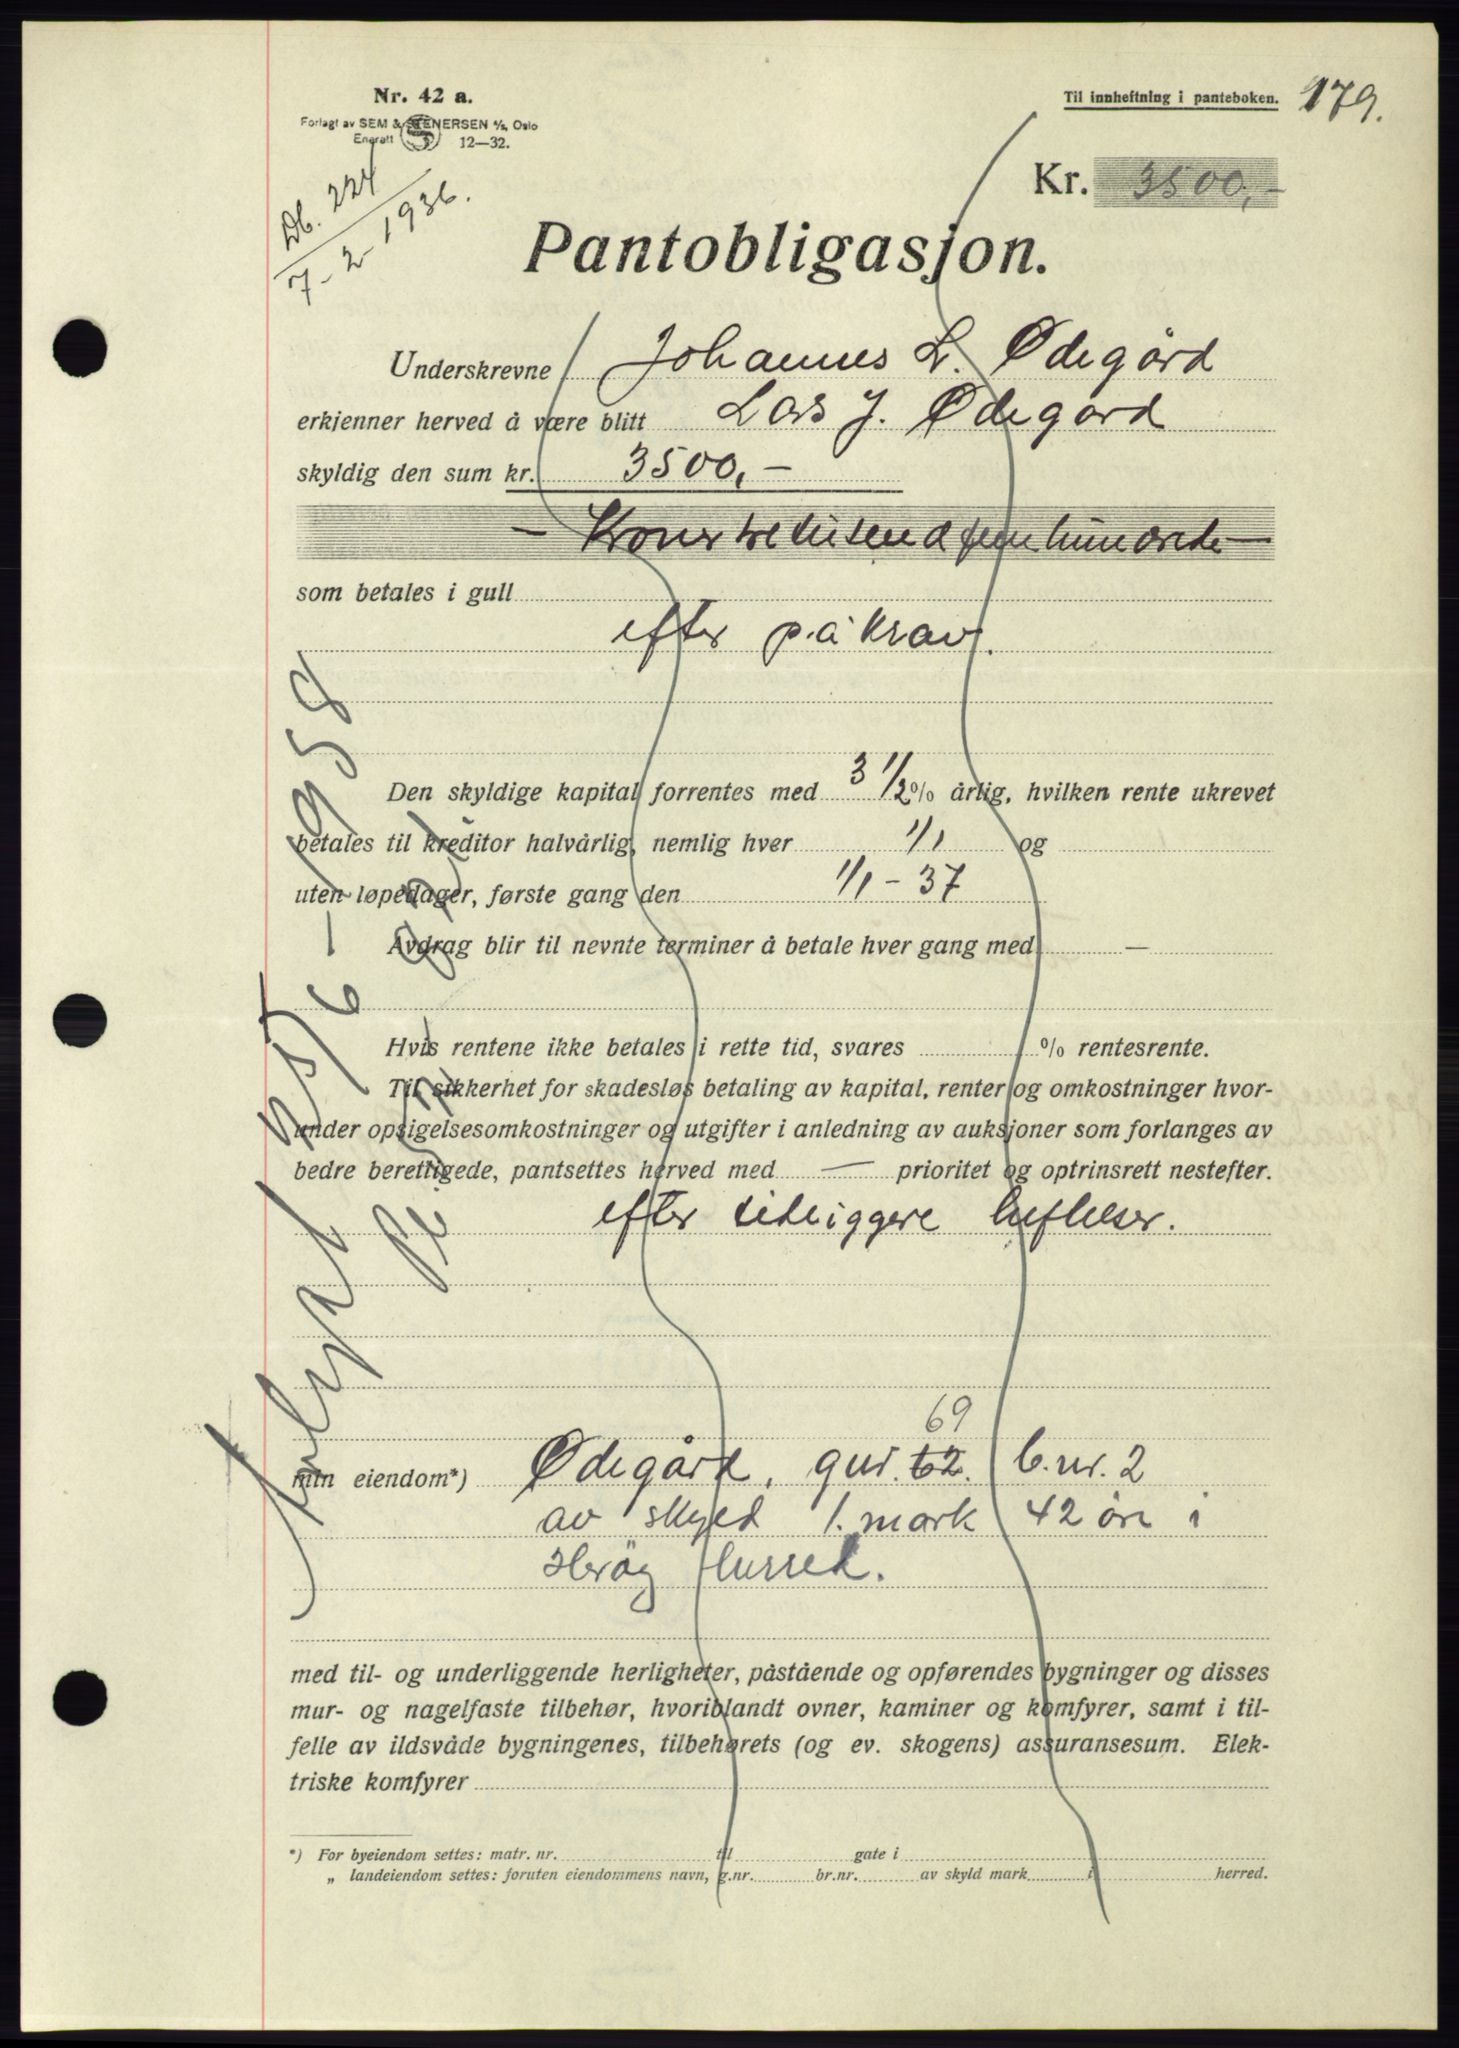 Nr. 42 a.
Forlagt av SEM & STENERSEN A/S, Oslo
Enerett 12—32.
Til innheftning i panteboken.
179.
Db. 224
7-2-1936.
Kr. 3500,-
Pantobligasjon.
Underskrevne Johannes L. Ødegård
erkjenner herved å være blitt Lars J. Ødegård
skyldig den sum kr. 3500,-
- Kroner tretusen d fem hundrede -
som betales i gull
efter påkrav.
Den skyldige kapital forrentes med 3 1/2 % årlig, hvilken rente ukrevet
betales til kreditor halvårlig, nemlig hver 1/1 og
uten løpedager, første gang den 1/1 - 37
Avdrag blir til nevnte terminer å betale hver gang med —
Hvis rentene ikke betales i rette tid, svares % rentesrente.
Til sikkerhet for skadesløs betaling av kapital, renter og omkostninger hvor-
under opsigelsesomkostninger og utgifter i anledning av auksjoner som forlanges av
bedre berettigede, pantsettes herved med — prioritet og optrinsrett nestefter.
efter tidligere heftelser.
69
min eiendom*) Ødegård, gnr. 62. b.nr. 2
av skyld 1. mark 42 øre i
Herøy Herred.
med til- og underliggende herligheter, påstående og opførendes bygninger og disses
mur- og nagelfaste tilbehør, hvoriblandt ovner, kaminer og komfyrer, samt i til-
felle av ildsvåde bygningenes, tilbehørets (og ev. skogens) assuransesum. Elek-
triske komfyrer
*) For byeiendom settes: matr. nr. til gate i
„ landeiendom settes: foruten eiendommens navn, g.nr. br.nr. av skyld mark i herred.